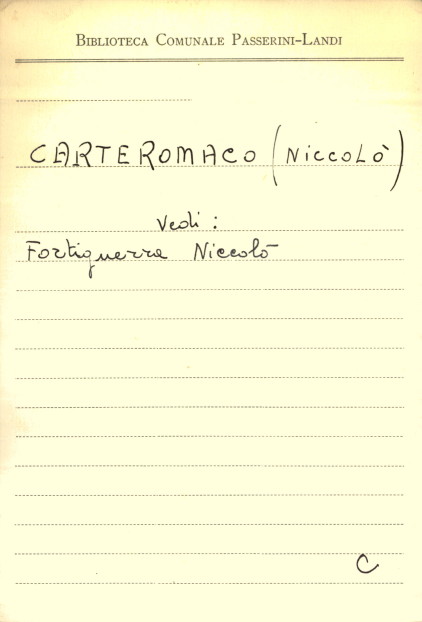 BIBLIOTECA COMUNALE PASSERINI-LANDI
CARTEROMACO (NICCOLÒ)
Vedi :
Fortiguerra Niccolò
C